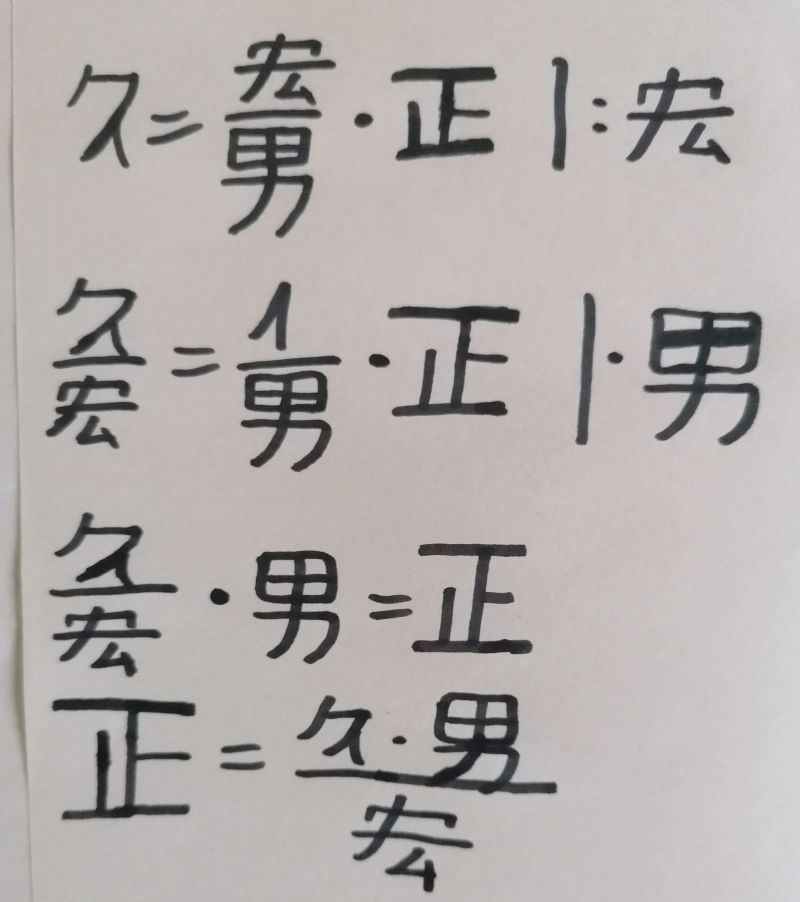 久 = 宏/男 · 正 | : 宏
久/宏 = 1/男 · 正 | · 男
久/宏 · 男 = 正
正 = 久 · 男/宏